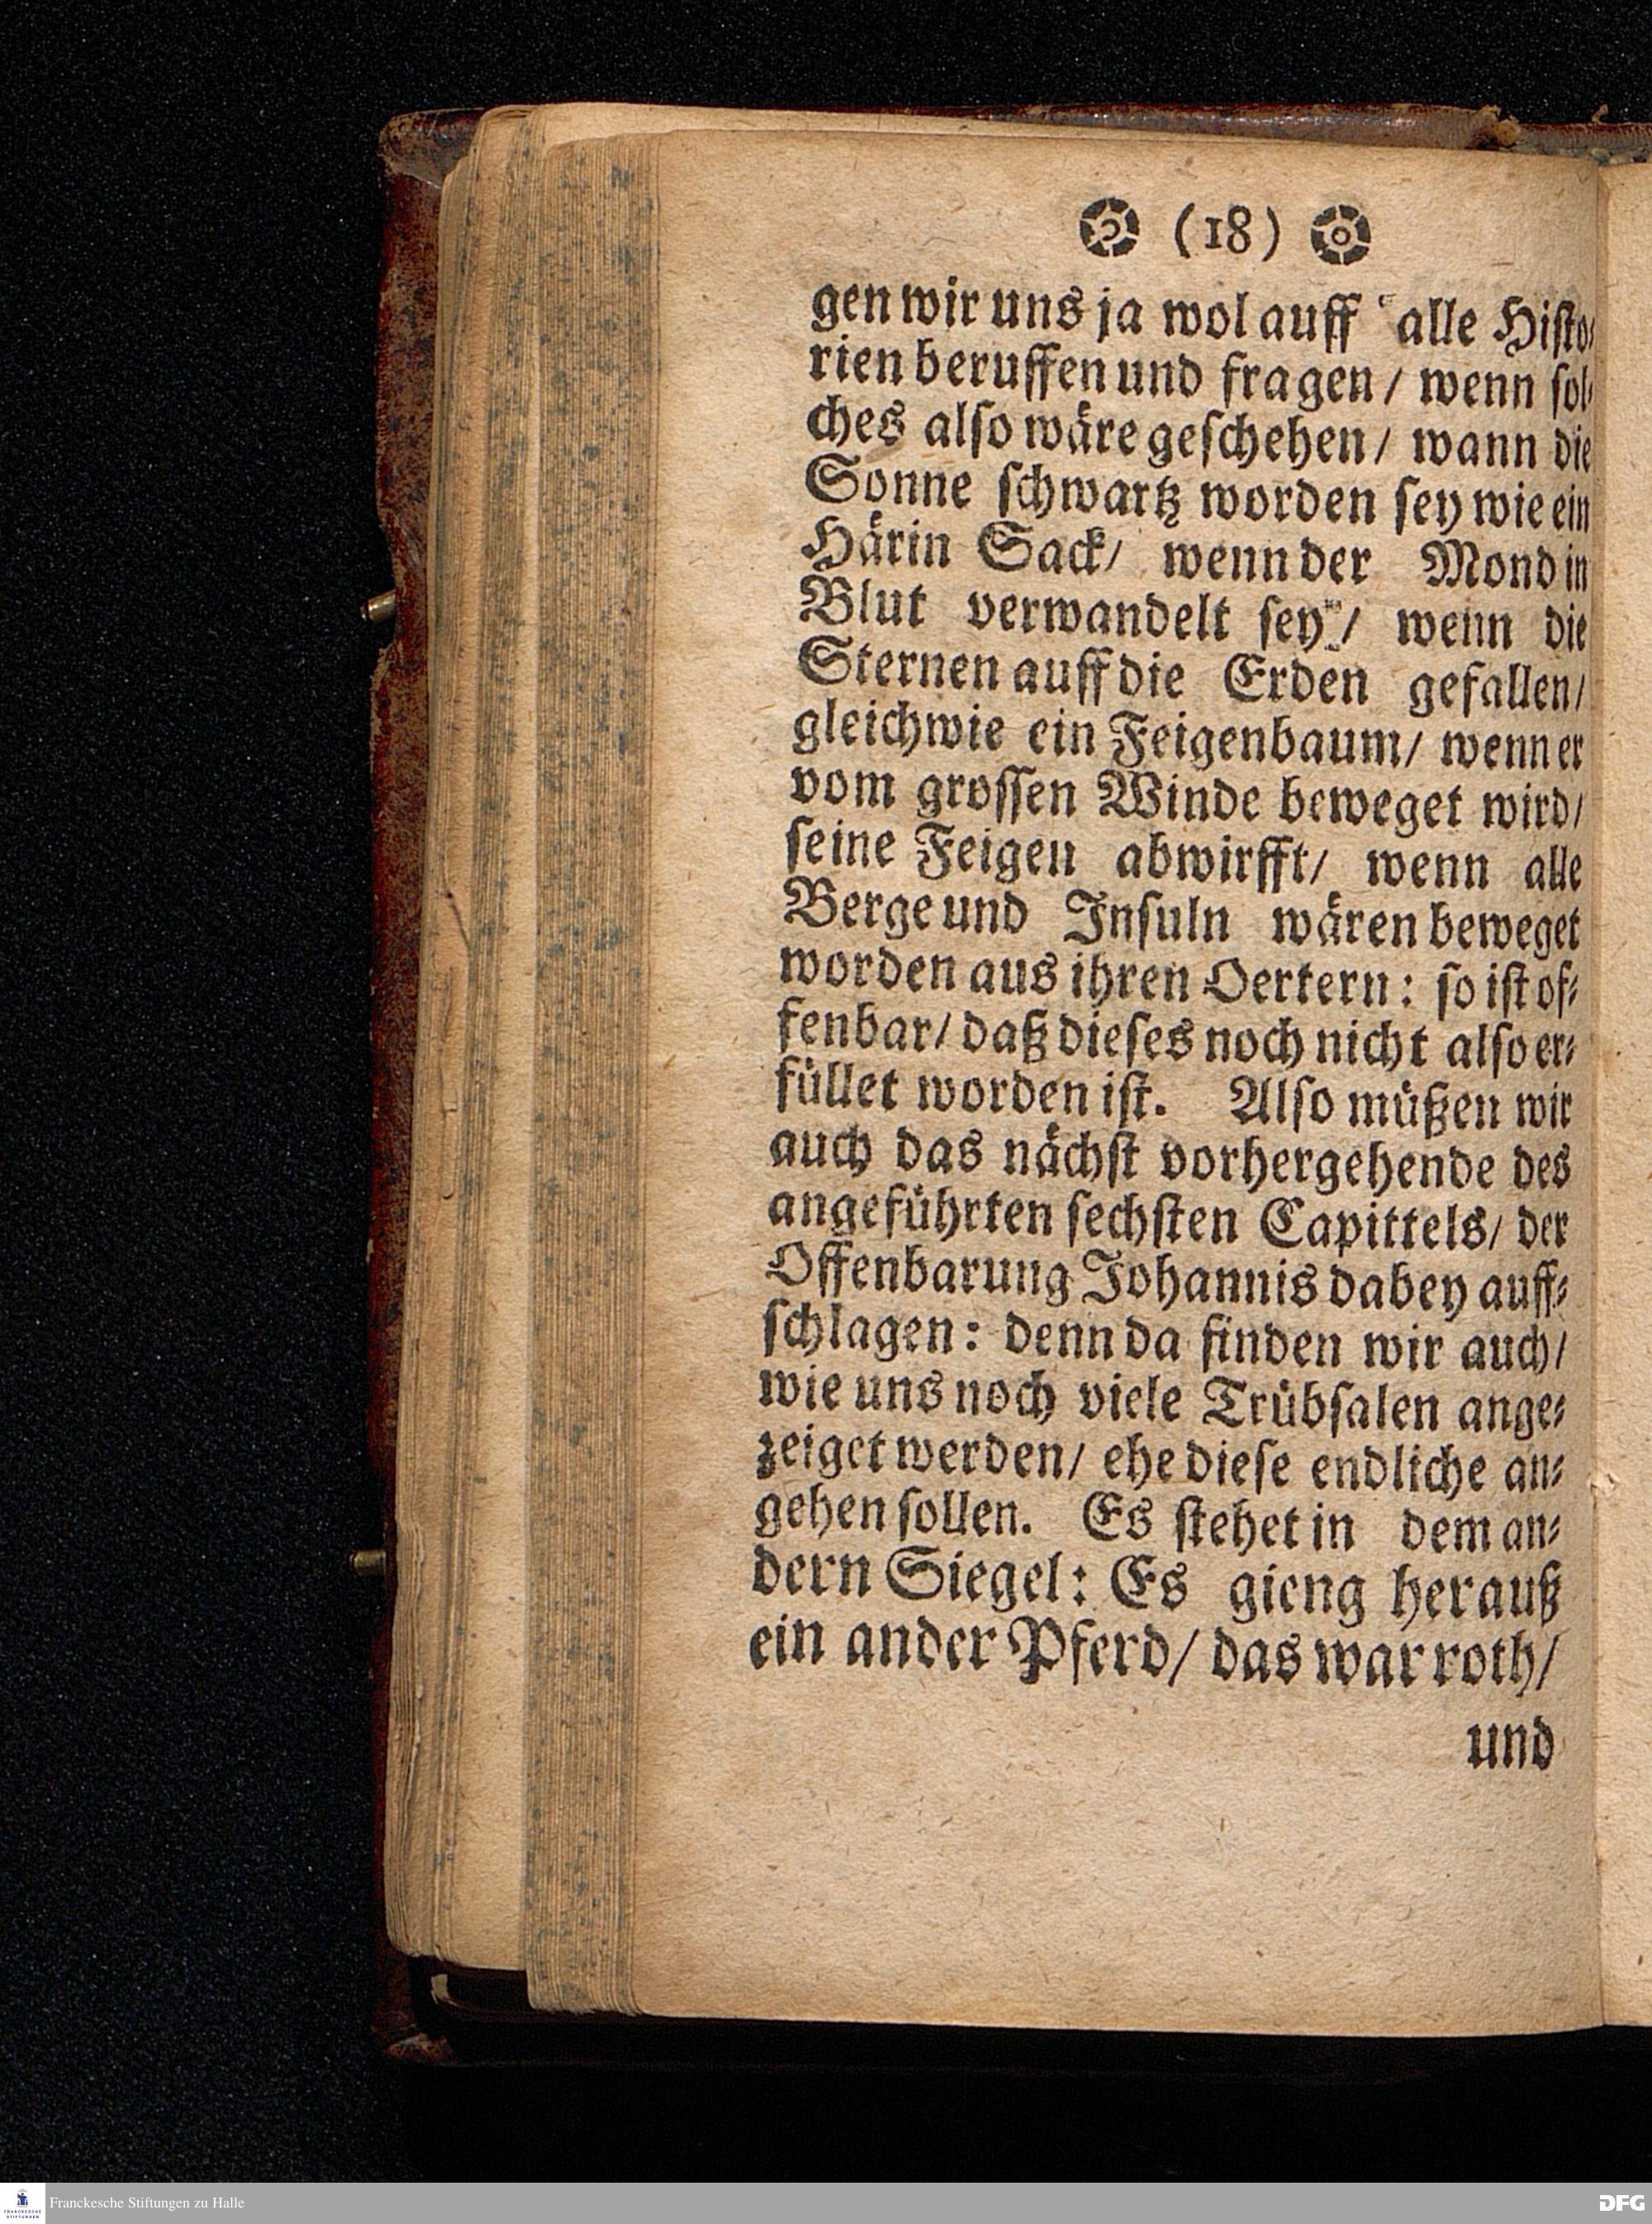 (18)
gen wir uns ja wol auff alle Histo-
rien beruffen und fragen / wenn sol-
ches also wäre geschehen / wann die
Sonne schwartz worden sey wie ein
Härin Sack / wenn der Mond in
Blut verwandelt sey / wenn die
Sternen auff die Erden gefallen /
gleichwie ein Feigenbaum / wenn er
vom grossen Winde beweget wird /
seine Feigen abwirfft / wenn alle
Berge und Insuln wären beweget
worden aus ihren Oertern: so ist of-
fenbar / daß dieses noch nicht also er-
füllet worden ist. Also müßen wir
auch das nächst vorhergehende des
angeführten sechsten Capittels / der
Offenbarung Johannis dabey auff-
schlagen: denn da finden wir auch /
wie uns noch viele Trübsalen ange-
zeiget werden / ehe diese endliche an-
gehen sollen. Es stehet in dem an-
dern Siegel: Es gieng herauß
ein ander Pferd / das war roth /
und
FRANCKESCHE
STIFTUNGEN
Franckesche Stiftungen zu Halle
DFG